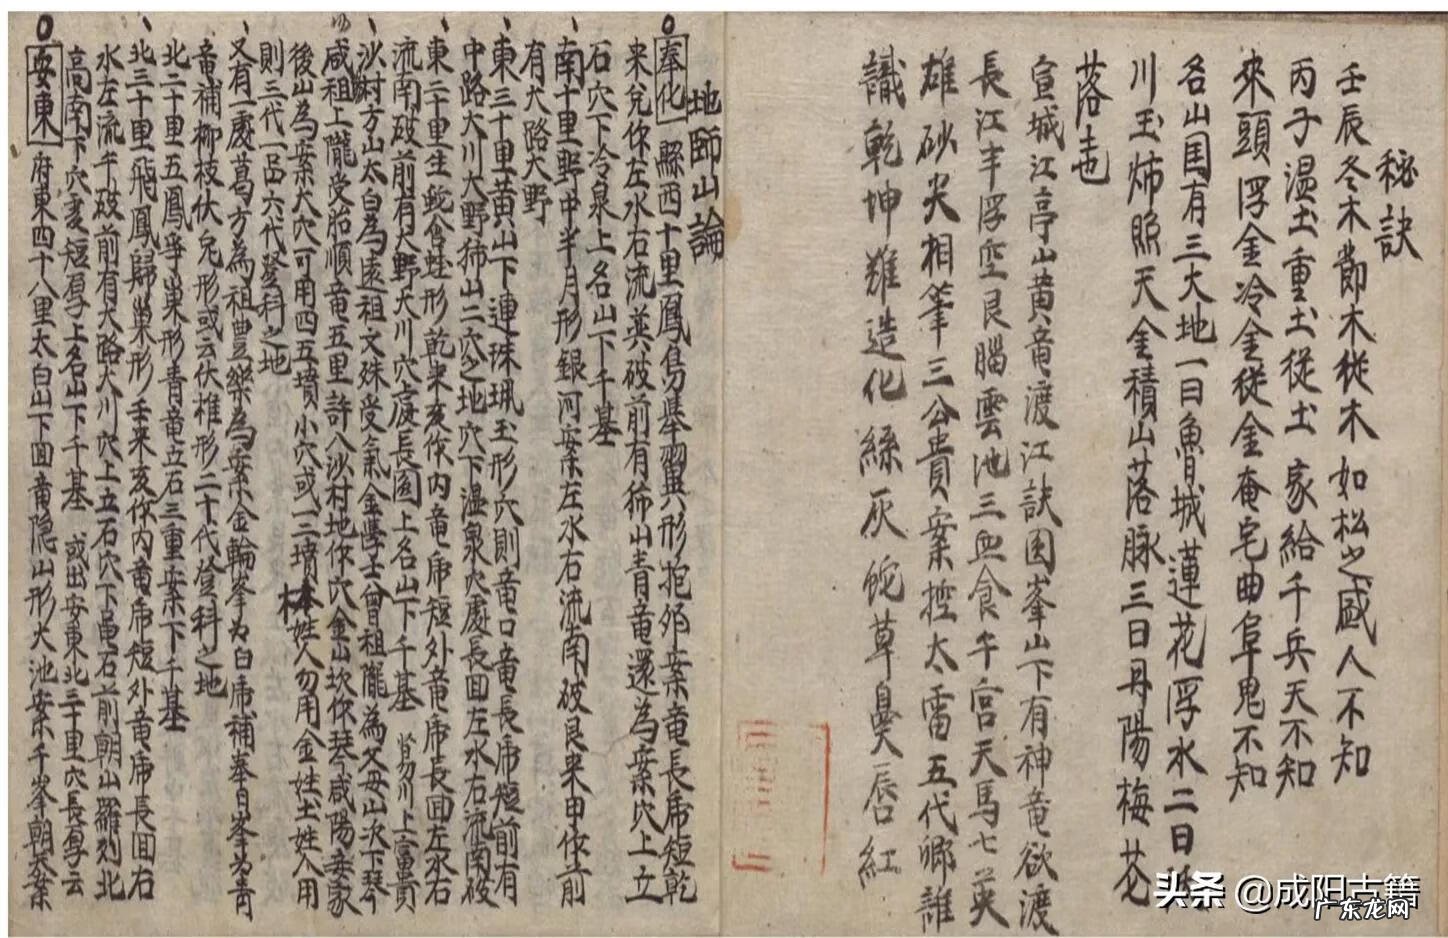 秘訣
壬辰冬木節木從木如松之盛人不知
丙子濕土重土從土家給千兵天不知
來頭浮金冷金從金奄宅曲阜鬼不知
名山圖有三大地一曰魚城蓮花浮水二曰
川玉燭照天金積山落脉三曰丹陽梅花
落地
宣城江亭山黃竜渡江訣圓峯山下有神竜欲渡
長江半浮空艮腦雲池三血食午宮天馬七英
雄砂尖相筆三公貴案控太雷五代鄉誰
識乾坤難造化絲灰蛇草臭唇紅
地師山論
奉化 縣西十里鳳鳥舉翼形抱卵案竜長帍短乾
來兌作左水右流巽破前有獅山青竜還為案穴上立
石穴下冷泉上名山下千基
南十里野中半月形銀河案左水右流南破艮來甲作前
有大路大野
東三十里黃山下連珠珮玉形穴則竜口竜長帍短前有
中路大川大野獅山二穴之地穴下溫泉穴處長回左水右流南破
東二十里生蛇含蛙形乾來亥作內竜帍短外竜帍長回左水右
流南破前有大野大川穴處長圓上名山下千基 易川上富貴
沙村方山太白為遠祖文殊受氣金學士曾祖隴為父母山次下琴
咸祖上隴受胎順竜五里許八沙村地作穴金山坎作琴咸陽妾家
後山為案大穴可用四五墳小穴或一二墳 姓人勿用金姓土姓人用
則三代一品六代登科之地
又有一處葛方為祖豊樂為案金輪峯为白帍補奉日峯为青
竜補柳枝伏兔形或云伏椎形二十代登科之地
北二十里五鳳爭巢形青竜立石三重案下千基
北三十里飛鳳歸巢形壬來亥作內竜帍短外竜帍長回右
水左流午破前有大路大川穴上立石穴下黽石前朝山羅列北
高南下穴處短厚上名山下千基 或出安東北三十里穴長厚云
安東 府東四十八里太白山下回竜隐山形大池案千峯朝天案
头条 @成阳古籍
广东龙网